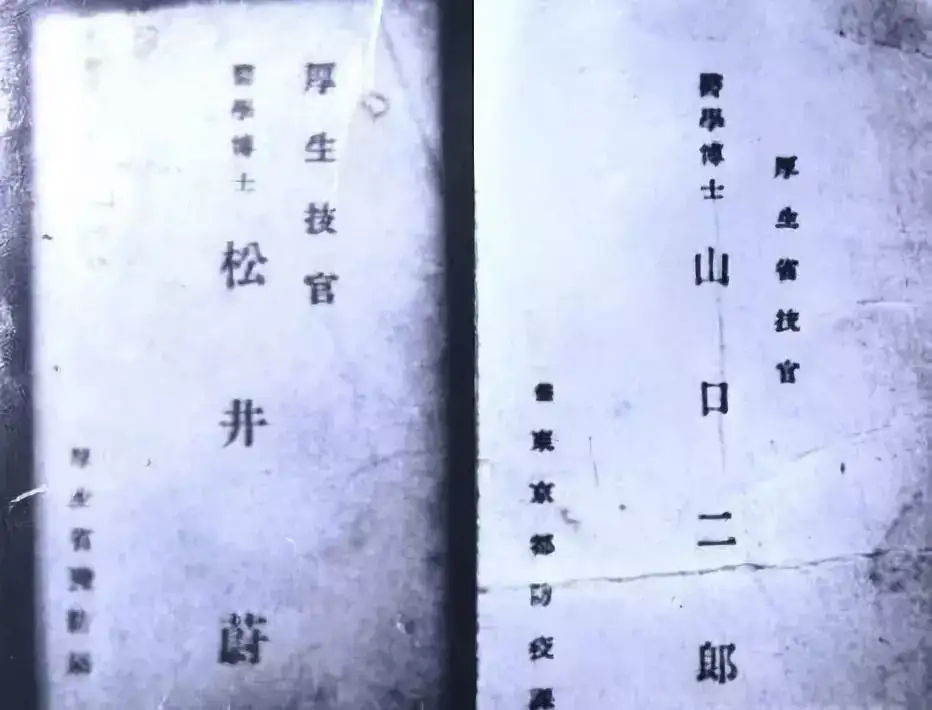 厚生技官
醫學博士 松井蔚
厚生省豫防局
厚生省技官
醫學博士 山口二郎
東京都防疫課